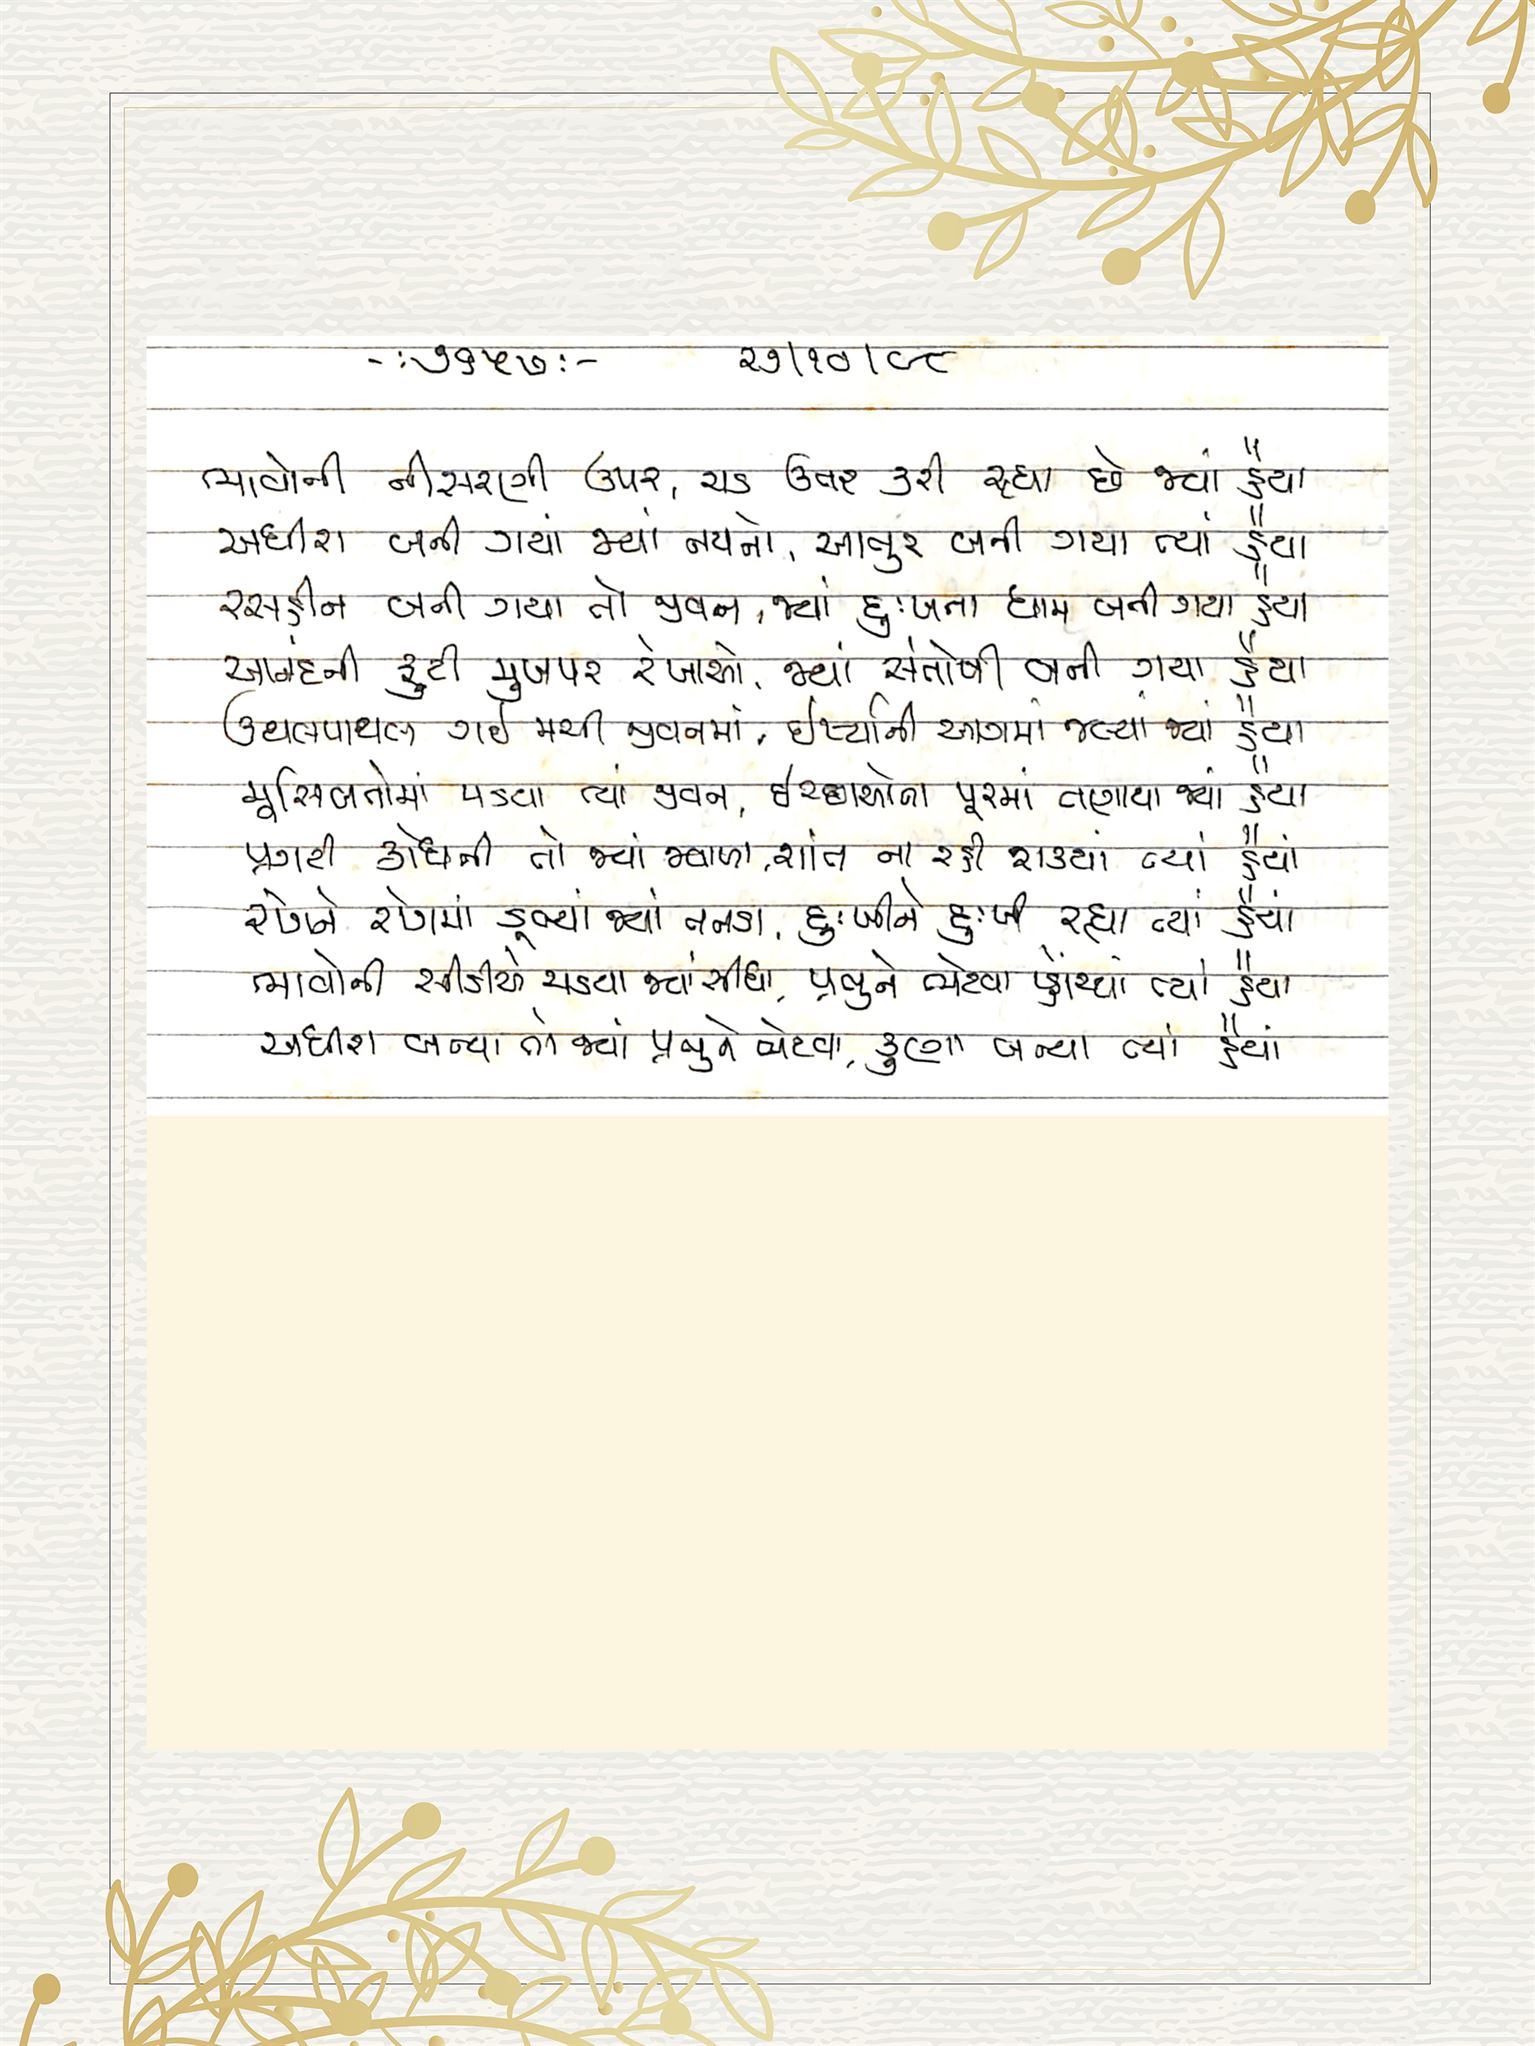 -:૭૬૫૭:- ૨૭/૧૦/૯૮
ભાવોની નીસરણી ઉપર, ચડ ઉતર કરી રહ્યા છે જ્યાં હૈયા
અધીરા બની ગયાં જ્યાં નયનો, આતુર બની ગયા ત્યાં હૈયા
રસહીન બની ગયા તો જીવન, જ્યાં દુઃખના ધામ બની ગયા હૈયાં
આનંદની કુટી મુખપર રેખાઓ, જ્યાં સંતોષી બની ગયા હૈયા
ઉથલપાથલ ગઈ મચી જીવનમાં, ઈર્ષ્યાની આગમાં જલ્યાં જ્યાં હૈયા
મૂસિબતોમાં પડયા ત્યાં જીવન, ઈચ્છાઓના પૂરમાં તણાયા જ્યાં હૈયા
પ્રગટી ક્રોધની તો જ્યાં જ્વાળા, શાંત ના રહી શક્યાં ત્યાં હૈયાં
રગેને રગેમાં ડૂબ્યાં જ્યાં તનડા, દુઃખીને દુઃખી રહ્યા ત્યાં હૈયાં
ભાવોની સીડીએ ચડયા જ્યાં સીધા, પ્રભુને ભેટવા પ્હોંચ્યાં ત્યાં હૈયા
અધીરા બન્યા તો જ્યાં પ્રભુને ભેટવા, કુણા બન્યા ત્યાં હૈયાં